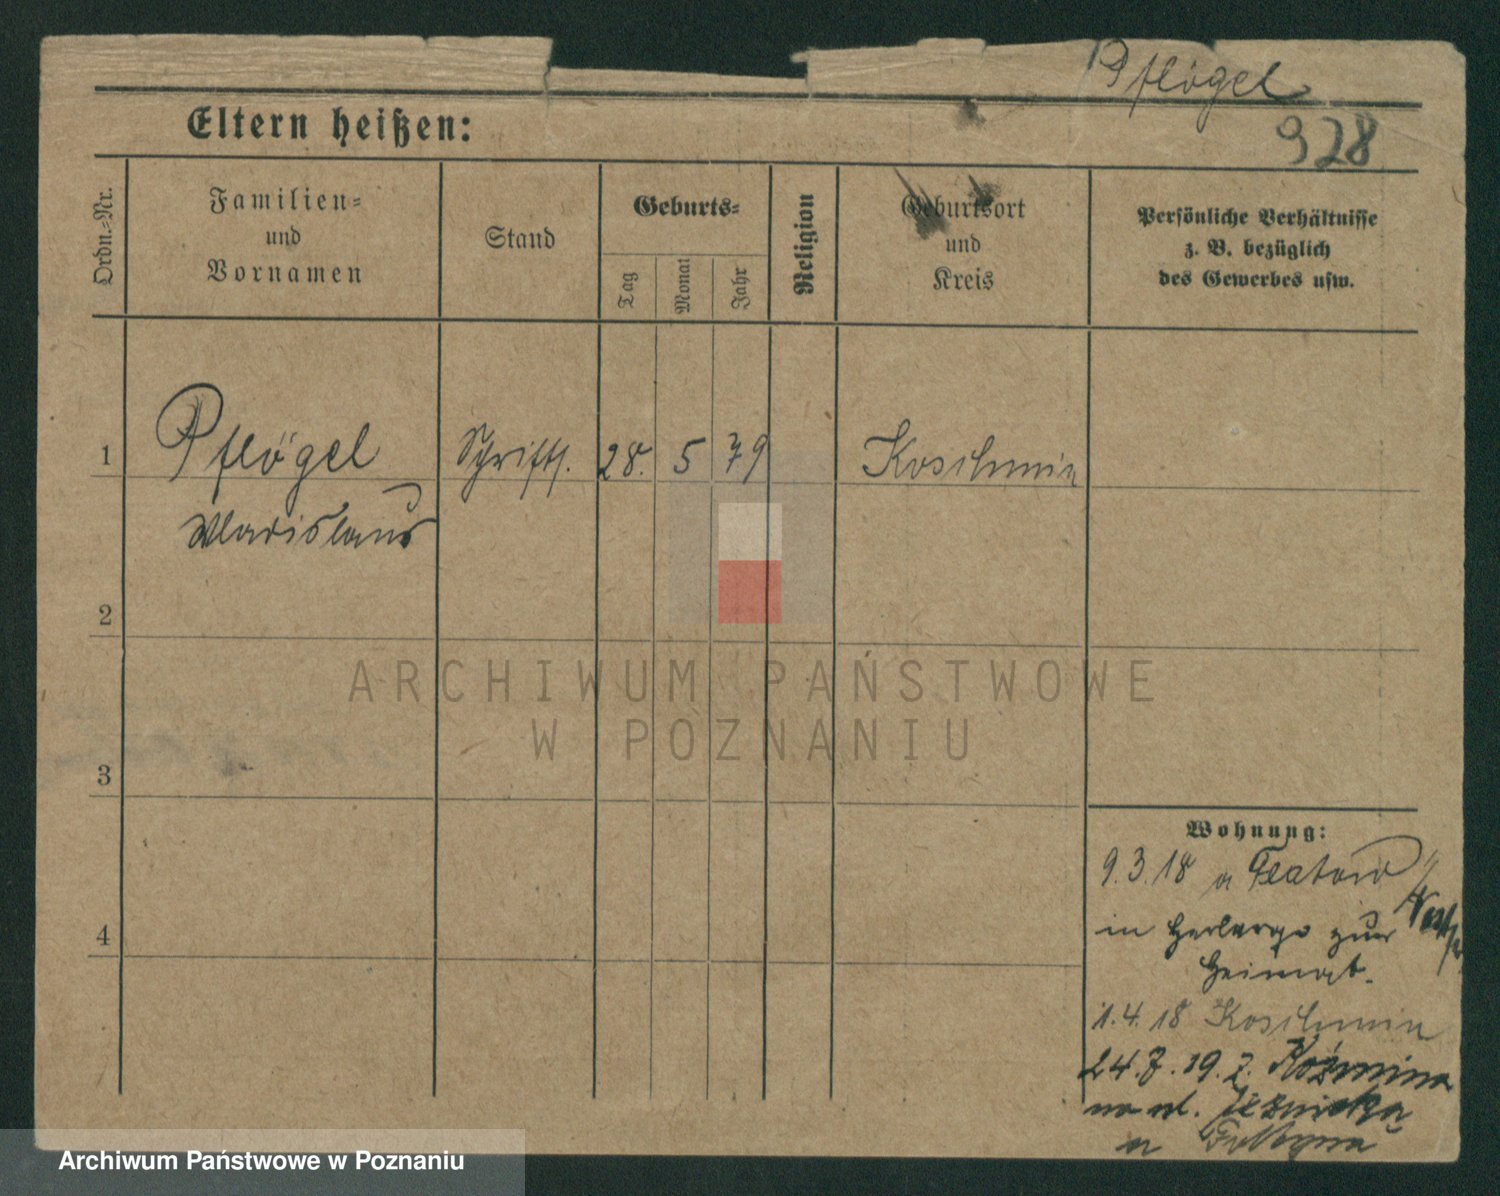 Pflögel
928
Eltern heißen:
Ordn.=Nr.
Familien=
und
Vornamen
Stand
Geburts=
Tag
Monat
Jahr
Religion
Geburtsort
und
Kreis
Persönliche Verhältnisse
z. B. bezüglich
des Gewerbes usw.
1
Pflögel
Schrifts.
28. 5 79
Koschmin
Wladislaus
2
3
4
Wohnung:
9.3.18 a Flatow
in Herberge zur
Heimat.
1.4.18 Koschmin
24.7.19. z. Koźmina
na ul.
ARCHIWUM PAŃSTWOWE
W POZNANIU
Archiwum Państwowe w Poznaniu